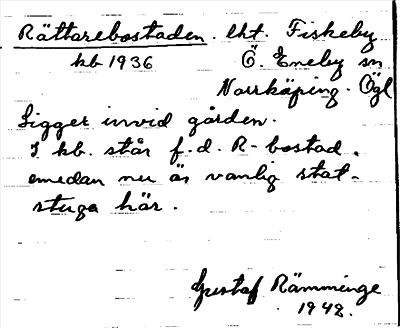 Rättarebostaden. lht. Fiskeby
kb 1936 Ö. Eneby sn
Norrköping. Ögl
Ligger invid gården.
I kb. står f.d. R-bostad.
emedan nu är vanlig stat-
stuga här.
Gustaf Rämminge
1942.